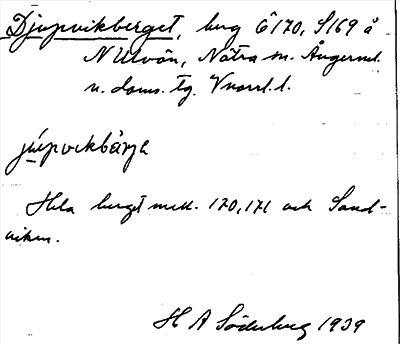 Djupvikberget, berg Ö 170, S 169 å
N Ulvön, Nätra sn. Ångerml.
n. doms. tg. Vnorrl. l.
júpvikbärjə
Hela berget mell. 170, 171 och Sand-
viken.
H A Söderberg 1939